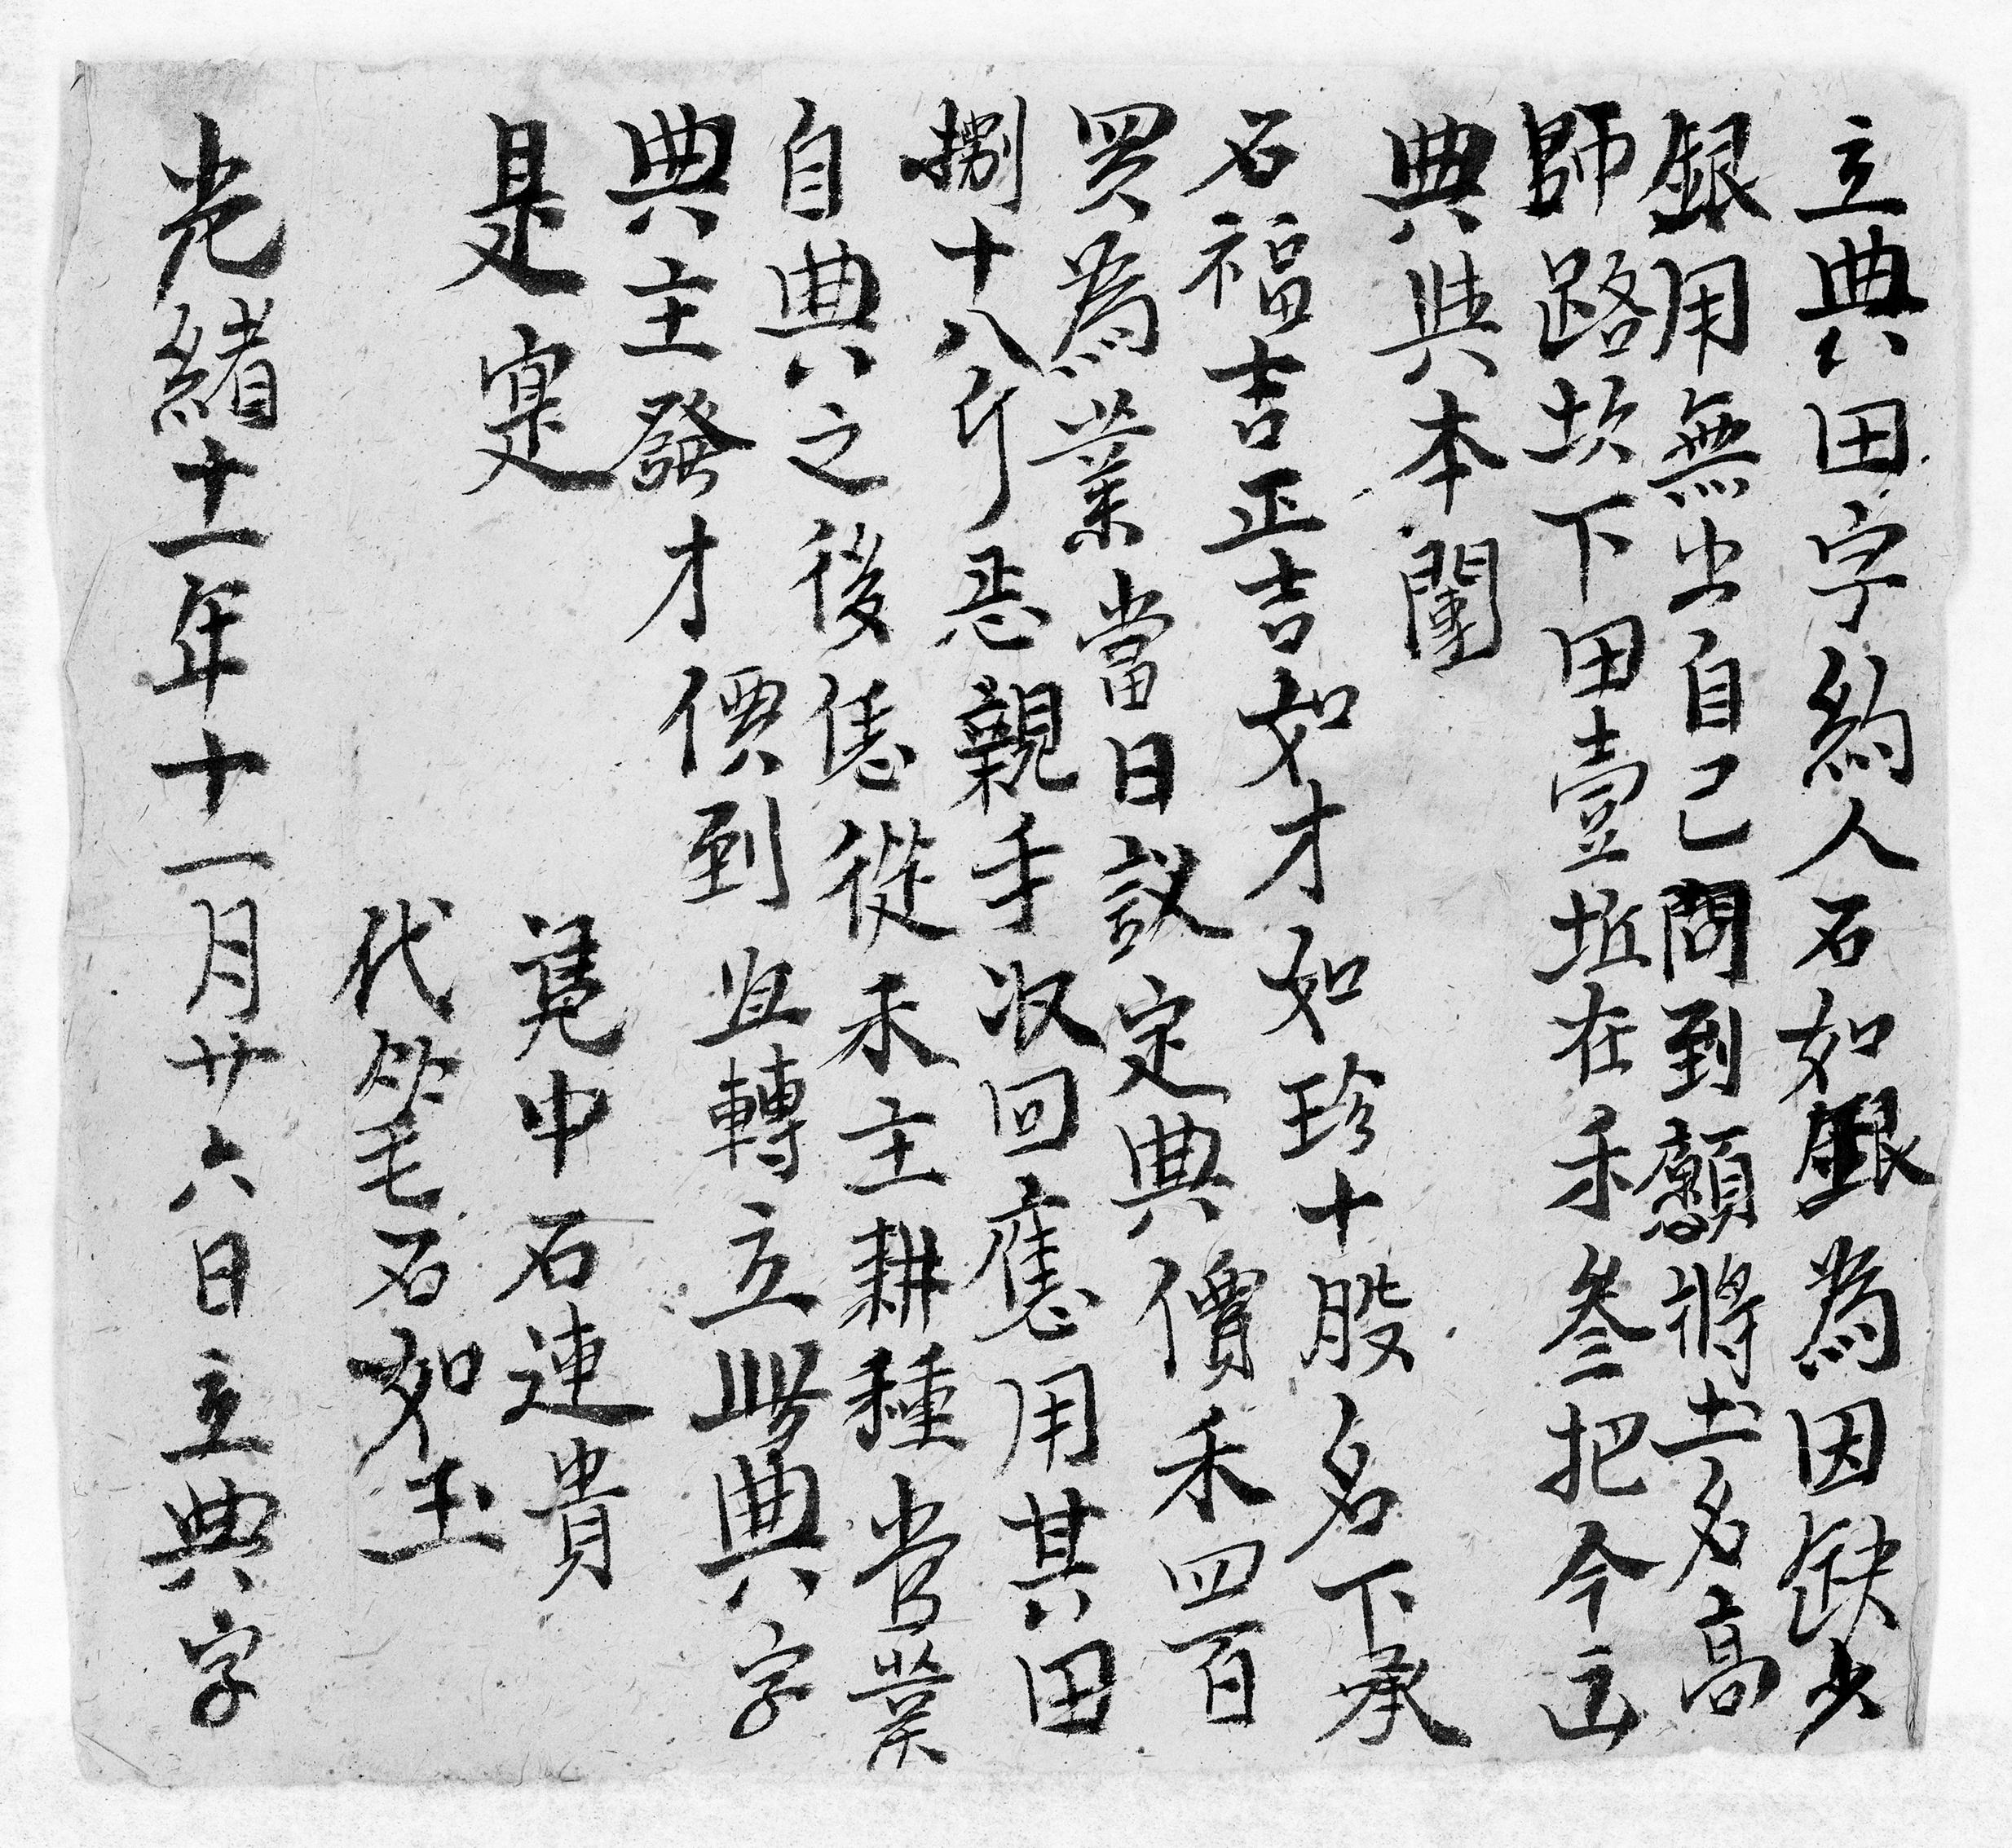 立典田字約人石如銀為因缺少
銀用無出自己問到願將土名高
歸路坎下田壹坵在禾叁把今立
典與本團
石福吉正吉如才如珍十股名下承
買為業當日議定典價禾四百
捌十八斤悉親手収回應用其田
自典之後恁從禾主耕種管業
典主發才價到並轉立此典字
是寔
憑中石連貴
代笔石如玉
光緒十一年十一月廿六日立典字